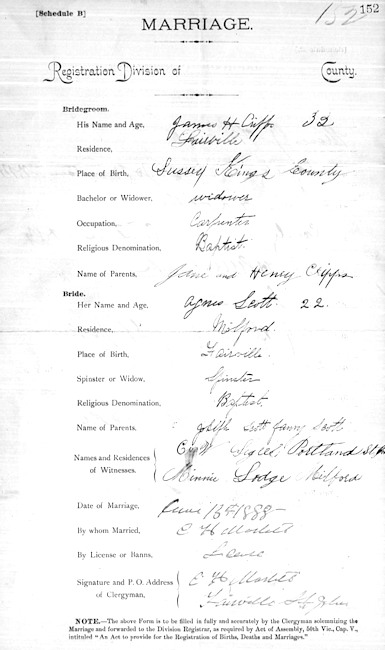 [Schedule B]
152
152
MARRIAGE.
Registration Division of County.
Bridegroom.
His Name and Age, James H Cripps 32
Residence, Fairville
Place of Birth, Sussex Kings County
Bachelor or Widower, widower
Occupation, Carpenter
Religious Denomination, Baptist
Name of Parents, Jane and Henry Cripps
Bride.
Her Name and Age, Agnes Scott 22
Residence, Milford
Place of Birth, Fairville
Spinster or Widow, Spinster
Religious Denomination, Baptist
Name of Parents, Joseph Scott Fanny Scott
Names and Residences Portland St
of Witnesses. Minnie Lodge Milford
Date of Marriage, June 13th 1888
By whom Married, E H
By License or Banns, License
Signature and P. O. Address E H
of Clergyman, Fairville St John
NOTE.—The above Form is to be filled in fully and accurately by the Clergyman solemnizing the
Marriage and forwarded to the Division Registrar, as required by Act of Assembly, 50th Vic., Cap. V.,
intituled "An Act to provide for the Registration of Births, Deaths and Marriages."